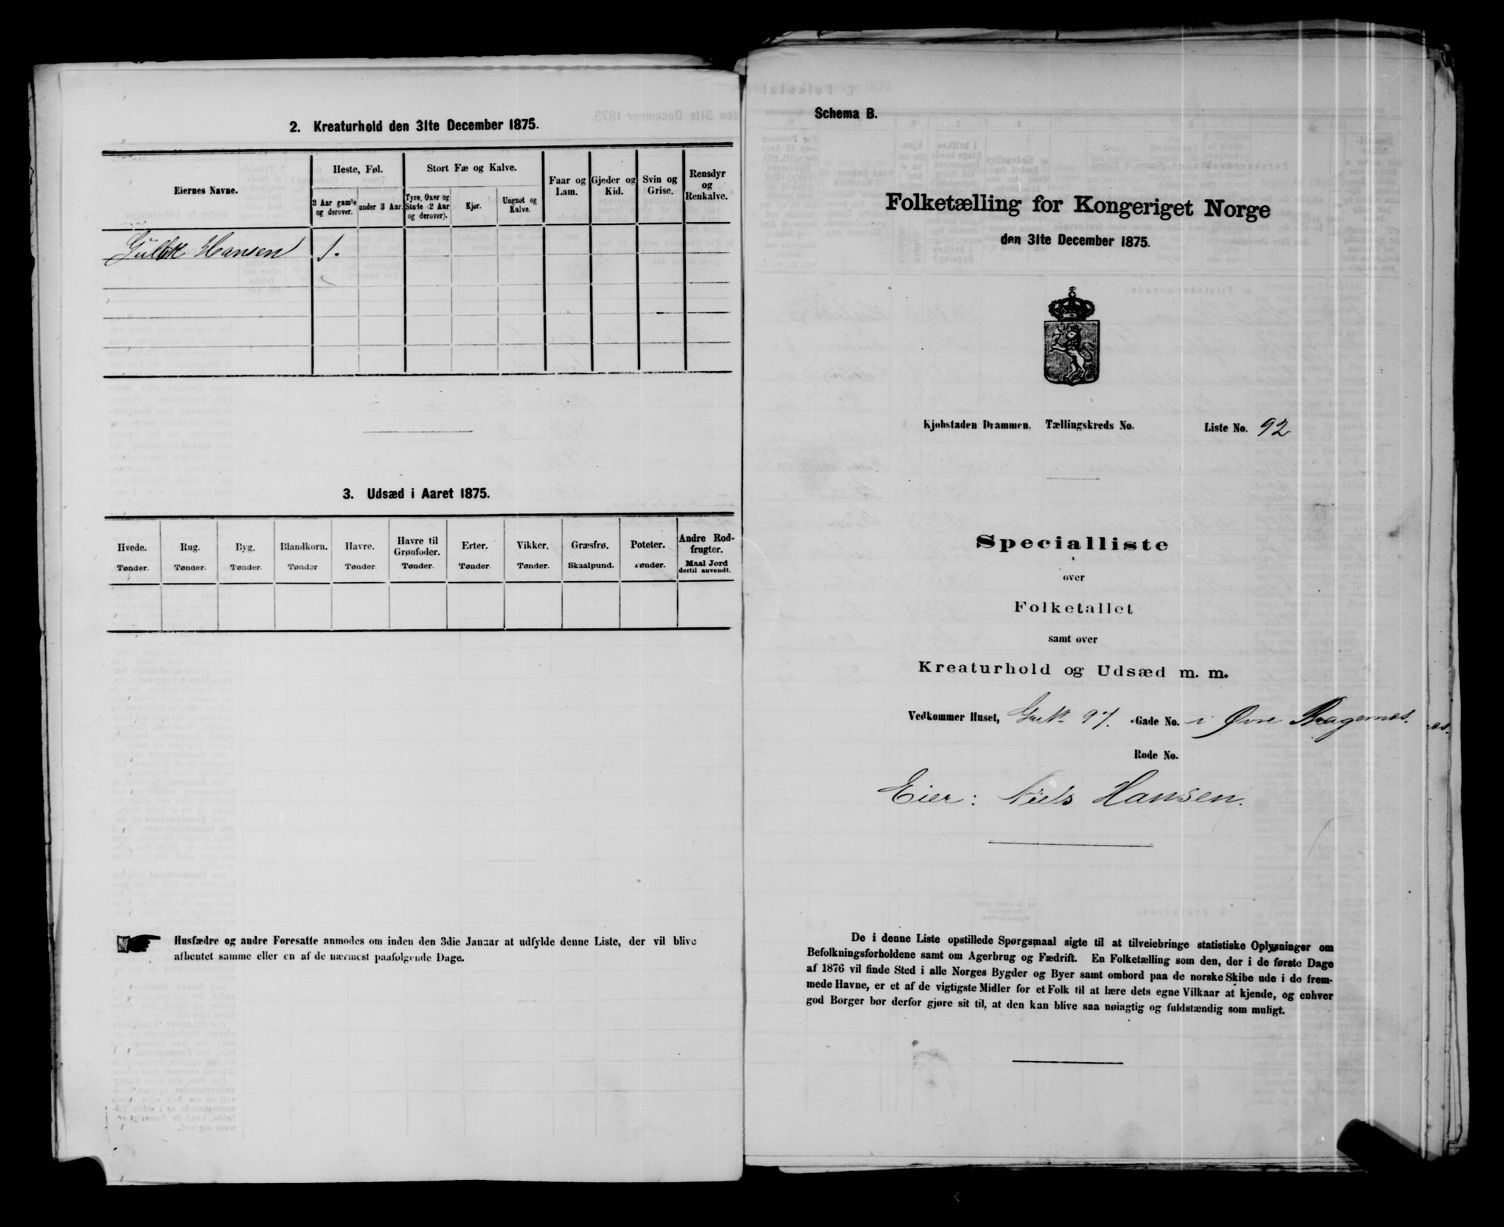 2. Kreaturhold den 31te December 1875.
Eiernes Navne.
Heste, Føl.
Stort Fæ og Kalve.
Faar og Lam.
Gjeder og Kid.
Svin og Grise.
Rensdyr og Renkalve.
3 Aar gamle og derover.
under 3 Aar.
Tyre, Oxer og Stude (2 Aar og derover).
Kjør.
Ungnøt og Kalve.
Hansen 1.
3. Udsæd i Aaret 1875.
Hvede. Rug. Byg. Blandkorn. Havre. Havre til Grønfoder. Erter. Vikker. Græsfrø. Poteter. Andre Rodfrugter.
Tønder. Tønder. Tønder. Tønder Tønder. Tønder. Tønder. Tønder. Skaalpund. Tønder. Maal Jord dertil anvendt.
Husfædre og andre Foresatte anmodes om inden den 3die Januar at udfylde denne Liste, der vil blive
afhentet samme eller en af de nærmest paafølgende Dage.
Schema B.
Folketælling for Kongeriget Norge
den 31te December 1875.
Kjøbstaden Drammen. Tællingskreds No. Liste No. 92
Specialliste
over
Folketallet
samt over
Kreaturhold og Udsæd m. m.
Vedkommer Huset, 97. Gade No. i Øvre Bragernæs.
Rode No.
Eier: Niels Hansen.
De i denne Liste opstillede Spørgsmaal sigte til at tilveiebringe statistiske Oplysninger om
Befolkningsforholdene samt om Agerbrug og Fædrift. En Folketælling som den, der i de første Dage
af 1876 vil finde Sted i alle Norges Bygder og Byer samt ombord paa de norske Skibe ude i de frem-
mede Havne, er et af de vigtigste Midler for et Folk til at lære dets egne Vilkaar at kjende, og enhver
god Borger bør derfor gjøre sit til, at den kan blive saa nøiagtig og fuldstændig som muligt.